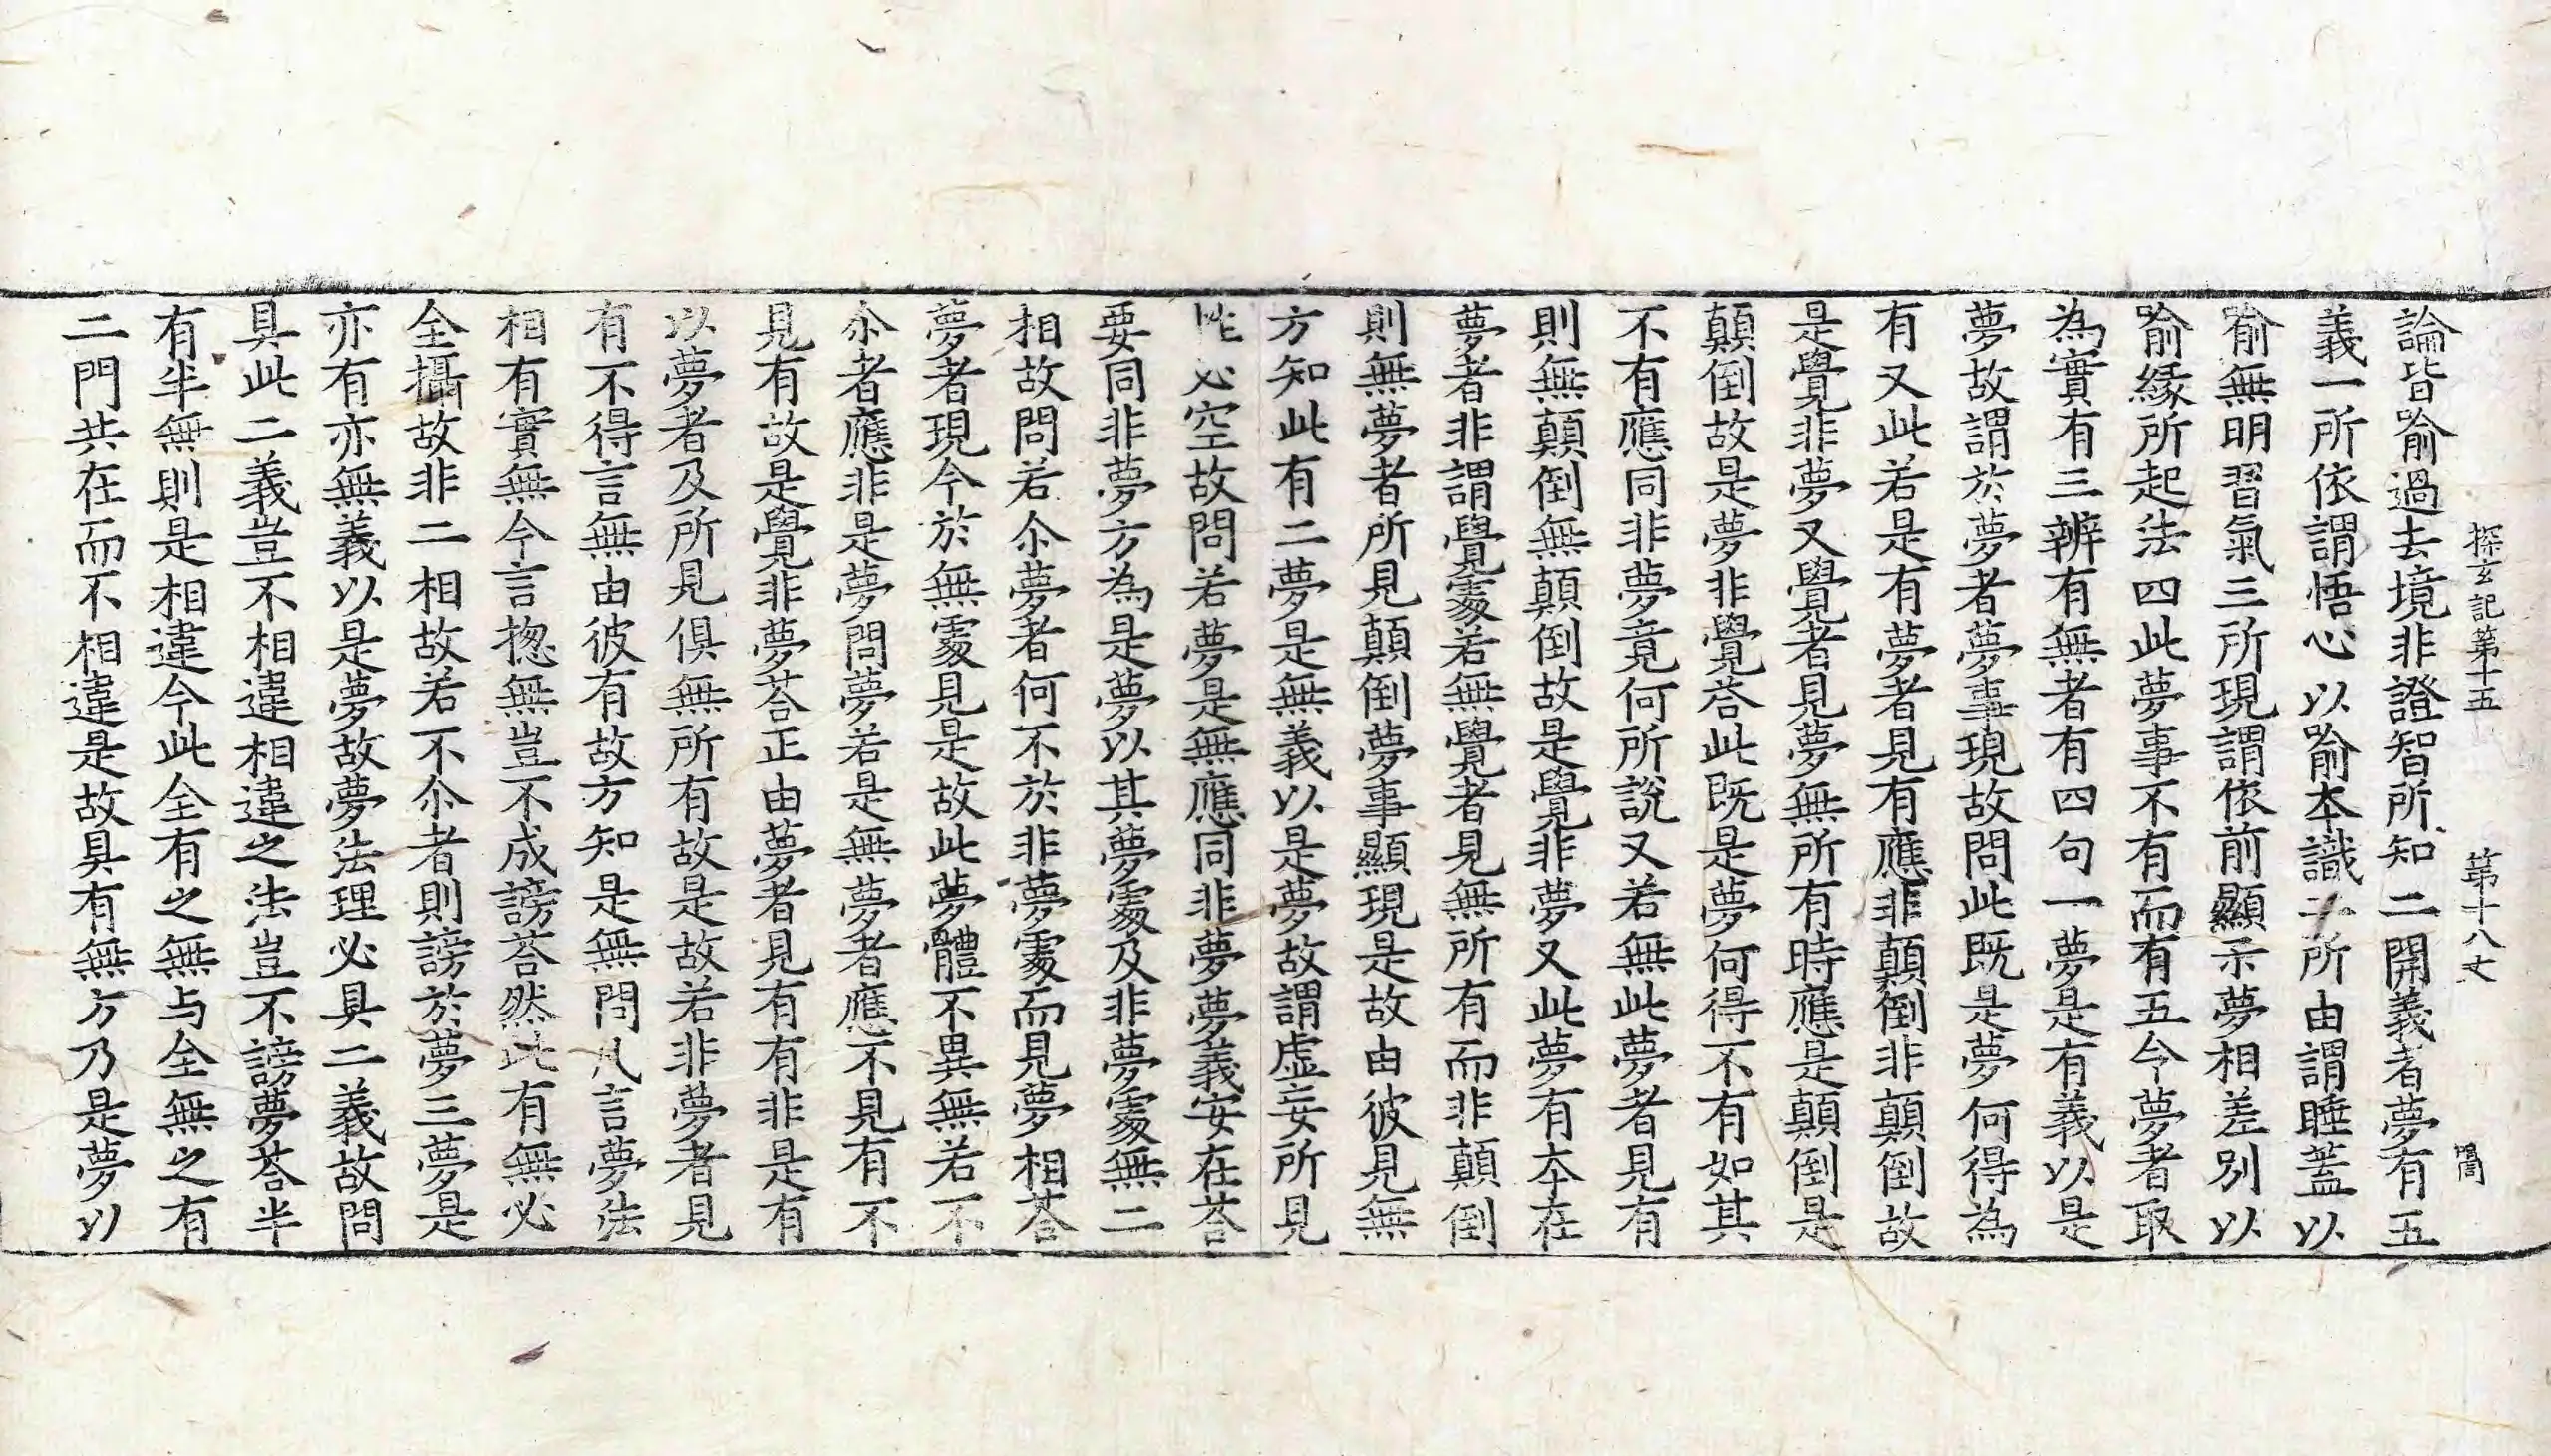 探玄記第十五 第十八丈
論皆喻過去境非證智所知二開義者夢有五
義一所依謂悟心以喻本識二所由謂睡蓋以
喻無明習氣三所現謂依前顯示夢相差別以
喻緣所起法四此夢事不有而有五令夢者取
為實有三辨有無者有四句一夢是有義以是
夢故謂於夢者夢事現故問此既是夢何得為
有又此若是有夢者見有應非顛倒非顛倒故
是覺非夢又覺者見夢無所有時應是顛倒是
顛倒故是夢非覺荅此既是夢何得不有如其
不有應同非夢竟何所說又若無此夢者見有
則無顛倒無顛倒故是覺非夢又此夢有本在
夢者非謂覺處若無覺者見無所有而非顛倒
則無夢者所見顛倒夢事顯現是故由彼見無
方知此有二夢是無義以是夢故謂虛妄所見
性必空故問若夢是無應同非夢夢義安在荅
要同非夢方為是夢以其夢處及非夢處無二
相故問若尒夢者何不於非夢處而見夢相荅
夢者現今於無處見是故此夢體不異無若不
尒者應非是夢問夢若是無夢者應不見有不
見有故是覺非夢荅正由夢者見有有非是有
以夢者及所見俱無所有故是故若非夢者見
有不得言無由彼有故方知是無問凡言夢法
相有實無今言揔無豈不成謗荅然此有無必
全攝故非二相故若不尒者則謗於夢三夢是
亦有亦無義以是夢故夢法理必具二義故問
具此二義豈不相違相違之法豈不謗夢荅半
有半無則是相違今此全有之無与全無之有
二門共在而不相違是故具有無方乃是夢以